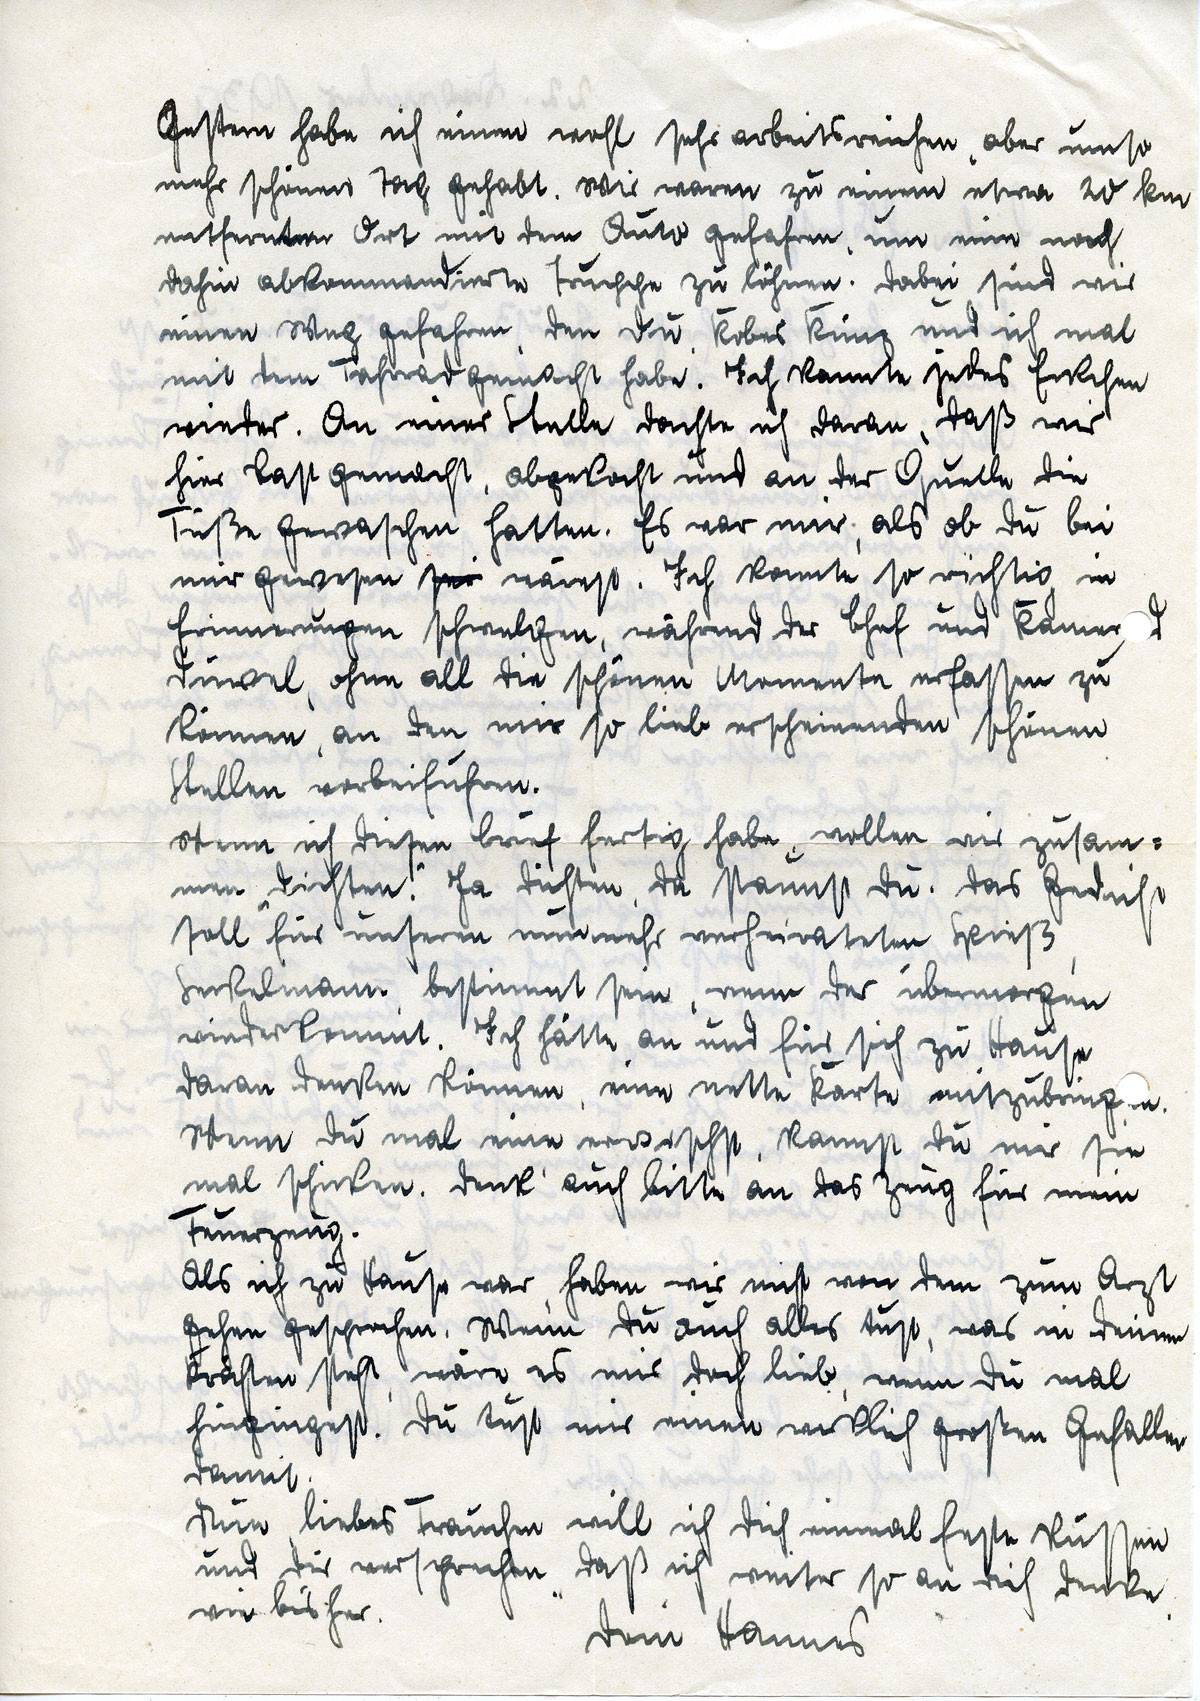 Gestern habe ich einen wohl sehr arbeitsreichen, aber umso
mehr schönen Tag gehabt. Wir waren zu einem etwa 20 km
entfernten Ort mit dem Auto gefahren, um eine noch
dahin abkommandierte Truppe zu löhnen. Dabei sind wir
einen Weg gefahren, den Du, Kobes Küng und ich mal
mit dem Fahrrad gemacht habe. Ich kannte jedes Eckchen
wieder. An einer Stelle dachte ich daran, daß wir
hier Rast gemacht, abgekocht und an der Quelle die
Füße gewaschen hatten. Es war mir, als ob Du bei
mir gewesen wärest. Ich konnte so richtig in
Erinnerungen schwelgen, während der Chef und Kamerad
Duwel, ohne all die schönen Momente erfassen zu
können, an den mir so lieb erscheinenden schönen
Stellen vorbeifuhren.
Wenn ich diesen Brief fertig habe, wollen wir zusam=
men "dichten." Ja dichten, da staunst Du. Das Gedicht
soll für unseren nunmehr verheirateten Spieß,
Seckelmann, bestimmt sein, wenn der übermorgen
wiederkommt. Ich hätte an und für sich zu Hause
daran denken können, eine nette Karte mitzubringen.
Wenn Du mal eine erwischst, kannst Du mir sie
mal schicken. Denk' auch bitte an das Zeug für mein
Feuerzeug.
Als ich zu Hause war, haben wir nicht von dem zum Arzt
gehen gesprochen. Wenn Du auch alles tust, was in Deinen
Kräften steht, wäre es mir doch lieb, wenn Du mal
hingingest. Du tust mir einen wirklich großen Gefallen
damit.
Nun, liebes Frauchen will ich Dich einmal feste küssen
und Dir versprechen, daß ich weiter so an Dich denke,
wie bisher.
Dein Hannes